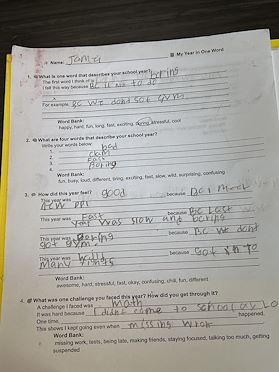 Name: Jama
My Year in One Word
1. What is one word that describes your school year?
The first word I think of is boring
I felt this way because
For example, BC we dond got gym
Word Bank:
happy, hard, fun, long, fast, exciting, boring, stressful, cool
2. What are four words that describe your school year?
Write your words below:
1. bad
2.
3. Fast
4. Boring
Word Bank:
fun, busy, loud, different, tiring, exciting, fast, slow, wild, surprising, confusing
3. How did this year feel?
This year was good because I Met
new ppl
This year was Fast because
was slow and boring
This year was Boring because BC we dont
got gym.
This year was because got
Many
Word Bank:
awesome, hard, stressful, fast, okay, confusing, chill, fun, different
4. What was one challenge you faced this year? How did you get through it?
A challenge I faced was Math
It was hard because I didnt come to school
One time, happened,
This shows I kept going even when missing work
Word Bank:
missing work, tests, being late, making friends, staying focused, talking too much, getting
suspended